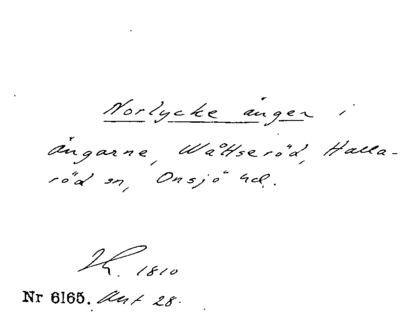 Norlycke ängen i
ängarne, Wåttseröd, Halla-
röd sn, Onsjö hd.
Lh. 1810
Nr 6165. Akt 28.